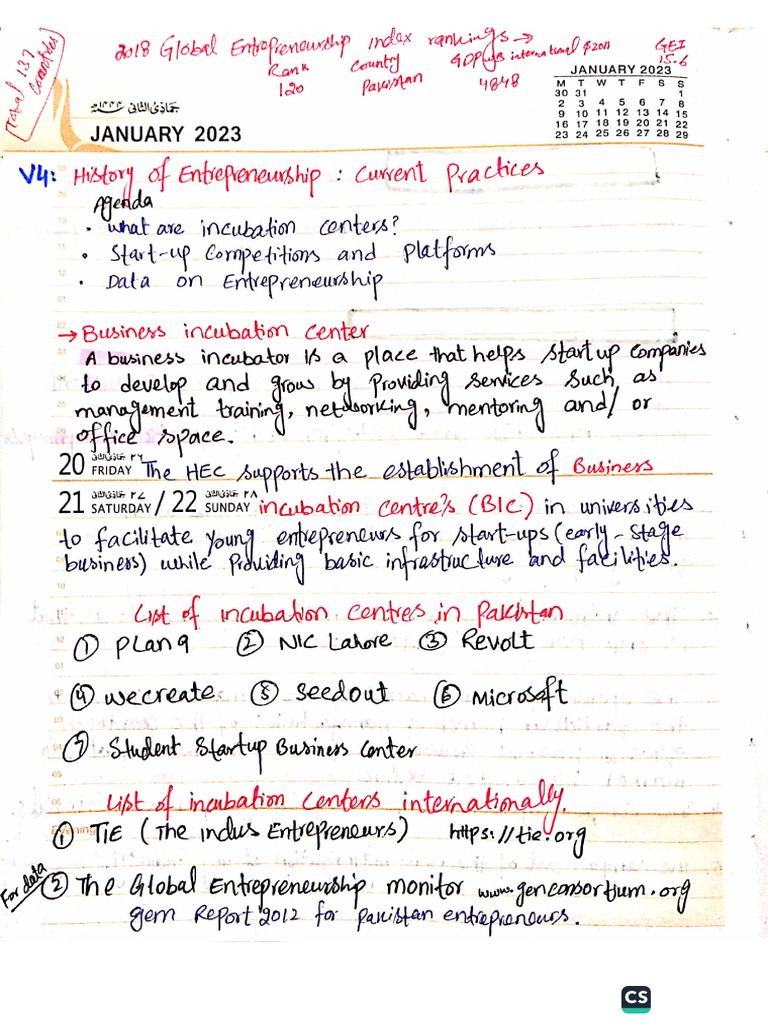 Total 137 countries
2018 Global Entrepreneurship index rankings →
Rank Country GDP international $2011 GEI
120 Pakistan 4848 15.6
JANUARY 2023
M T W T F S S
30 31 1
2 3 4 5 6 7 8
9 10 11 12 13 14 15
16 17 18 19 20 21 22
23 24 25 26 27 28 29
JANUARY 2023
V4: History of Entrepreneurship : Current Practices
Agenda
• What are incubation centers?
• Start-up Competitions and Platforms
• Data on Entrepreneurship
→ Business incubation center
A business incubator is a place that helps start up companies
to develop and grow by providing services such as
management training, networking, mentoring and/or
office space.
20 FRIDAY The HEC supports the establishment of Business
21 SATURDAY / 22 SUNDAY incubation centre's (BIC) in universities
to facilitate young entrepreneurs for start-ups (early-stage
business) while providing basic infrastructure and facilities.
List of incubation centres in Pakistan
① Plan 9 ② NIC Lahore ③ Revolt
④ wecreate ⑤ Seedout ⑥ Microsoft
⑦ Student Startup Business Center
List of incubation centers internationally.
① TiE (The indus Entrepreneurs) https://tie.org
For data
② The Global Entrepreneurship monitor www.gemconsortium.org
gem Report 2012 for Pakistan entrepreneurs.
CS